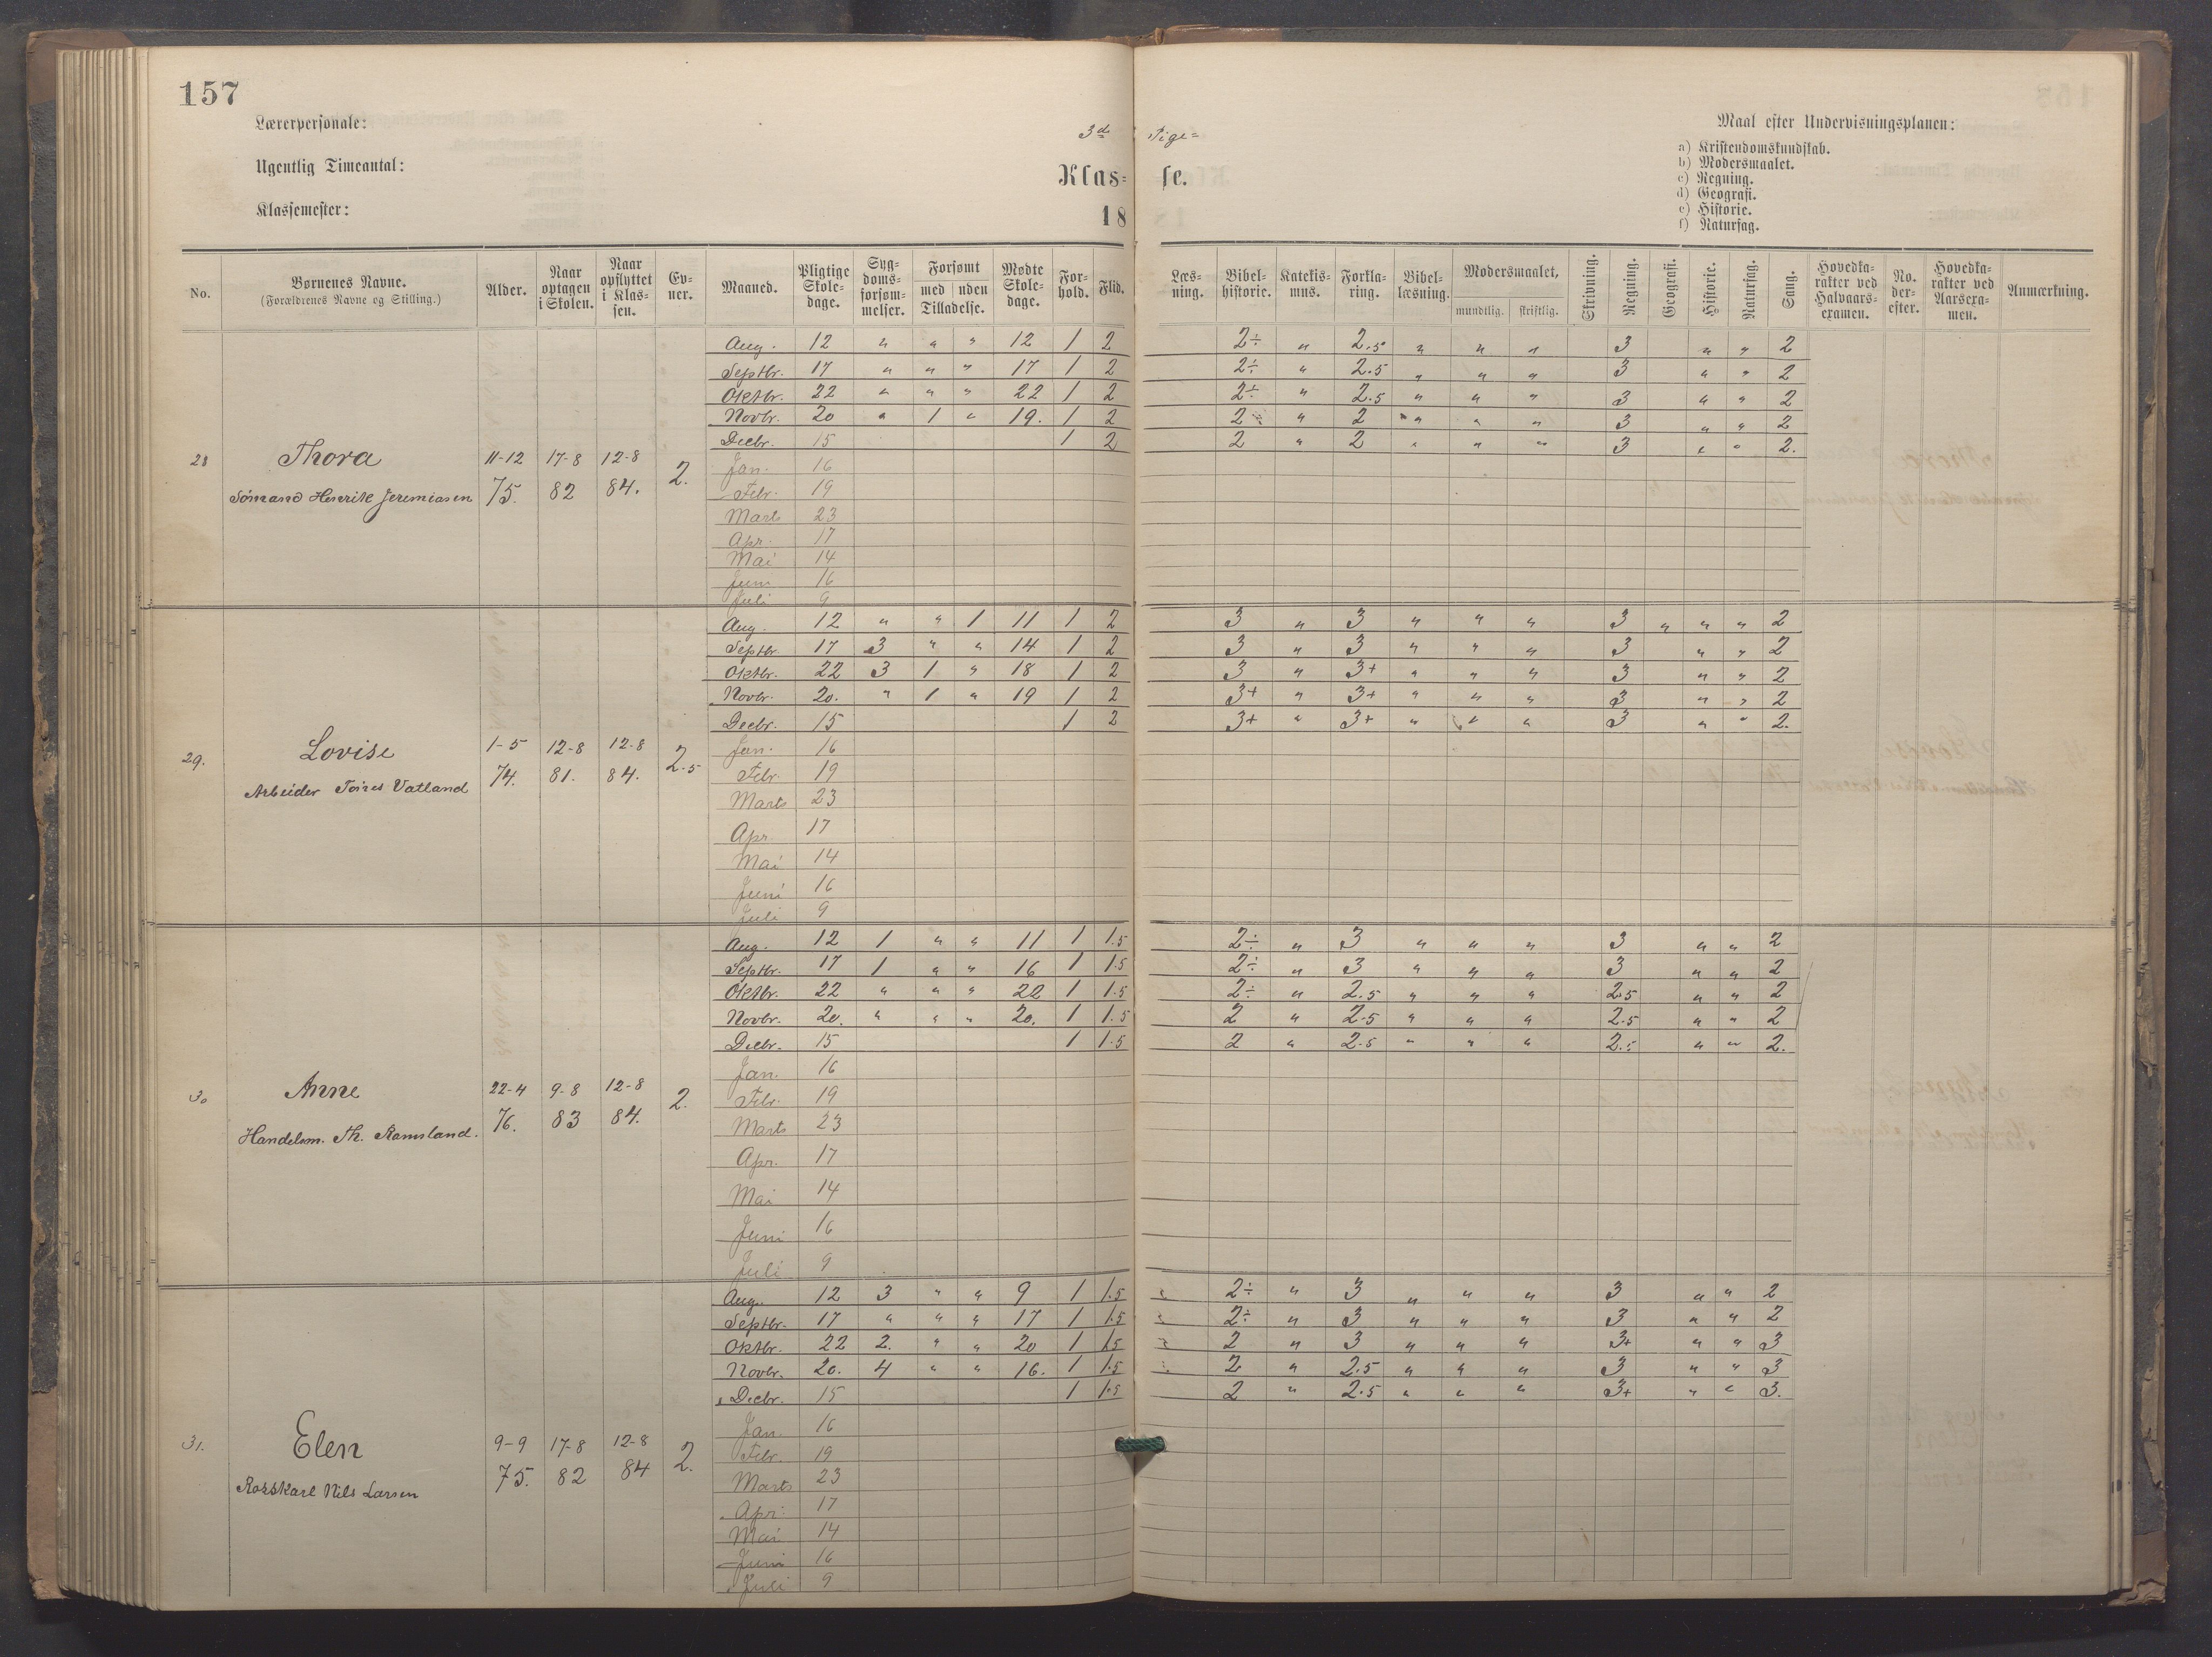 157
Lærerpersonale:
Ugentlig Timeantal:
Klassemester:
3d Pige=
Klas= se.
18
Maal efter Undervisningsplanen:
a) Kristendomskundskab.
b) Modersmaalet.
c) Regning.
d) Geografi.
e) Historie.
f) Naturfag.
No. Børnenes Navne. (Forældrenes Navne og Stilling.) Alder. Naar optagen i Skolen. Naar opflyttet i Klas= sen. Ev= ner. Maaned. Pligtige Skole= dage. Syg= doms= forsøm= melser. Forsømt med uden Tilladelse. Mødte Skole= dage. For= hold. Flid. Læs= ning. Bibel= historie. Katekis= mus. Forkla= ring. Bibel= læsning. Modersmaalet, mundtlig. skriftlig. Skrivning. Regning. Geografi. Historie. Naturfag. Sang. Hovedka= rakter ved Halvaars= examen. No. der= efter. Hovedka= rakter ved Aarsexa= men. Anmærkning.
Aug. 12 " " " 12 1 2 2÷ " 2.5 " " " 3 " " 2
Septbr. 17 " " " 17 1 2 2÷ " 2.5 " " " 3 " " 2
Oktbr. 22 " " " 22 1 2 2÷ " 2.5 " " " 3 " " 2
Novbr. 20 " 1 " 19. 1 2 2 " 2 " " " 3 " " 2
Decbr. 15 1 2 2 " 2 " " " 3 " " 2.
28 Thora 11-12 17-8 12-8 2.
Sømand Henrik Jeremiasen 75. 82 84.
Jan. 16
Febr. 19
Marts 23
Apr. 17
Mai 14
Juni 16
Juli 9
Aug. 12 " " 1 11 1 2 3 " 3 " " " 3 " " " 2
Septbr 17 3 " " 14 1 2 3 " 3 " " " 3 " " 2
Oktbr. 22 3 1 " 18 1 2 3 " 3+ " " " 3 " " 2
Novbr. 20. " 1 " 19 1 2 3+ " 3+ " " " 3 " " 2
Decbr. 15 1 2 3+ " 3+ " " " 3 " " 2.
29. Lovise 1-5 12-8 12-8 2.5
Arbeider Vatland 74. 81. 84.
Jan. 16
Febr. 19
Marts 23
Apr. 17
Mai 14
Juni 16
Juli 9
Aug. 12 1 " " 11 1 1.5 2÷ " 3 " " " 3 " " 2
Septbr. 17 1 " " 16 1 1.5 2÷ " 3 " " " 3 " " 2
Oktbr. 22 " " " 22 1 1.5 2÷ " 2.5 " " " 2.5 " " 2
Novbr. 20. " " " 20. 1 1.5 2 " 2.5 " " " 2.5 " " 2
Decbr. 15 1 1.5 2 " 2.5 " " " 2.5 " " 2.
30 Anne 22-4 9-8 12-8 2.
Handelsm. Th. Ramsland. 76. 83 84.
Jan. 16
Febr. 19
Marts 23
Apr. 17
Mai 14
Juni 16
Juli 9
Aug. 12 3 " " 9 1 1.5 2÷ " 3 " " " 3 " " 2
Septbr. 17 " " " 17 1 1.5 2÷ " 3 " " " 3 " " 2
Oktbr. 22 2. " " 20 1 1.5 2 " 3 " " " 3+ " " 3
Novbr. 20. 4 " " 16. 1 1.5 2 " 2.5 " " " 3 " " 3
Decbr. 15 1 1.5 2 " 2.5 " " " 3+ " " 3.
31. Elen 9-9 17-8 12-8 2.
Rorskarl Nils Larsen 75. 82 84
Jan. 16
Febr. 19
Marts 23
Apr. 17
Mai 14
Juni 16
Juli 9